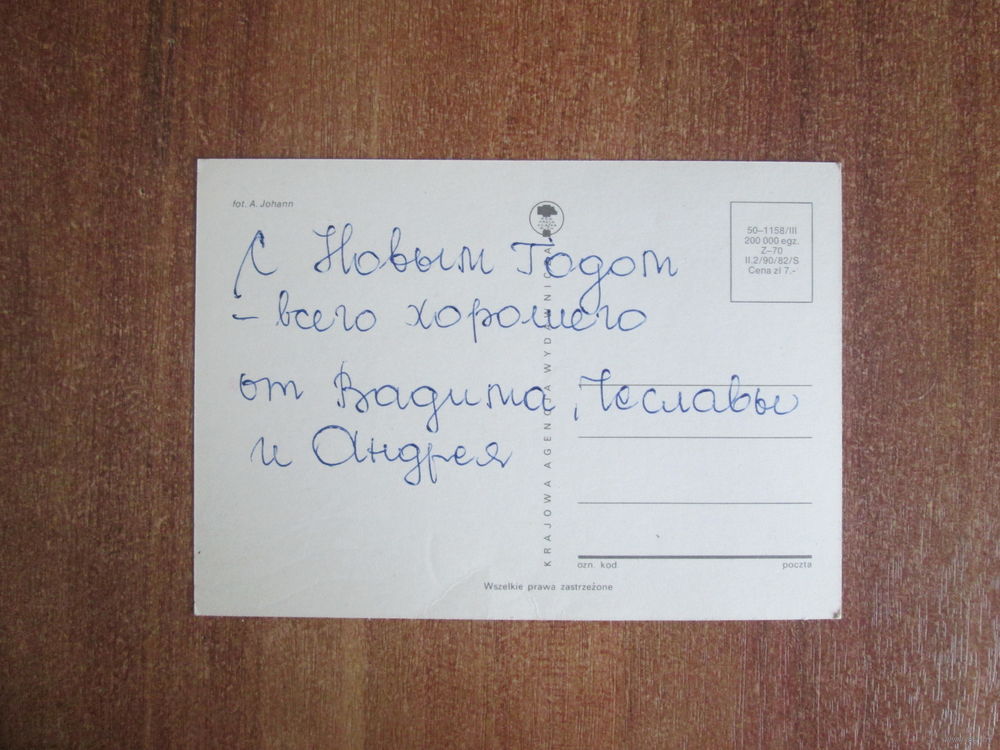 fot. A. Johann
50–1158/III
200 000 egz.
Z–70
II.2/90/82/S
Cena zł 7.-
С Новым Годом
– всего хорошего
от Вадима, Чеславы
и Андрея
KRAJOWA AGENCJA WYDAWNICZA
ozn. kod
poczta
Wszelkie prawa zastrzeżone